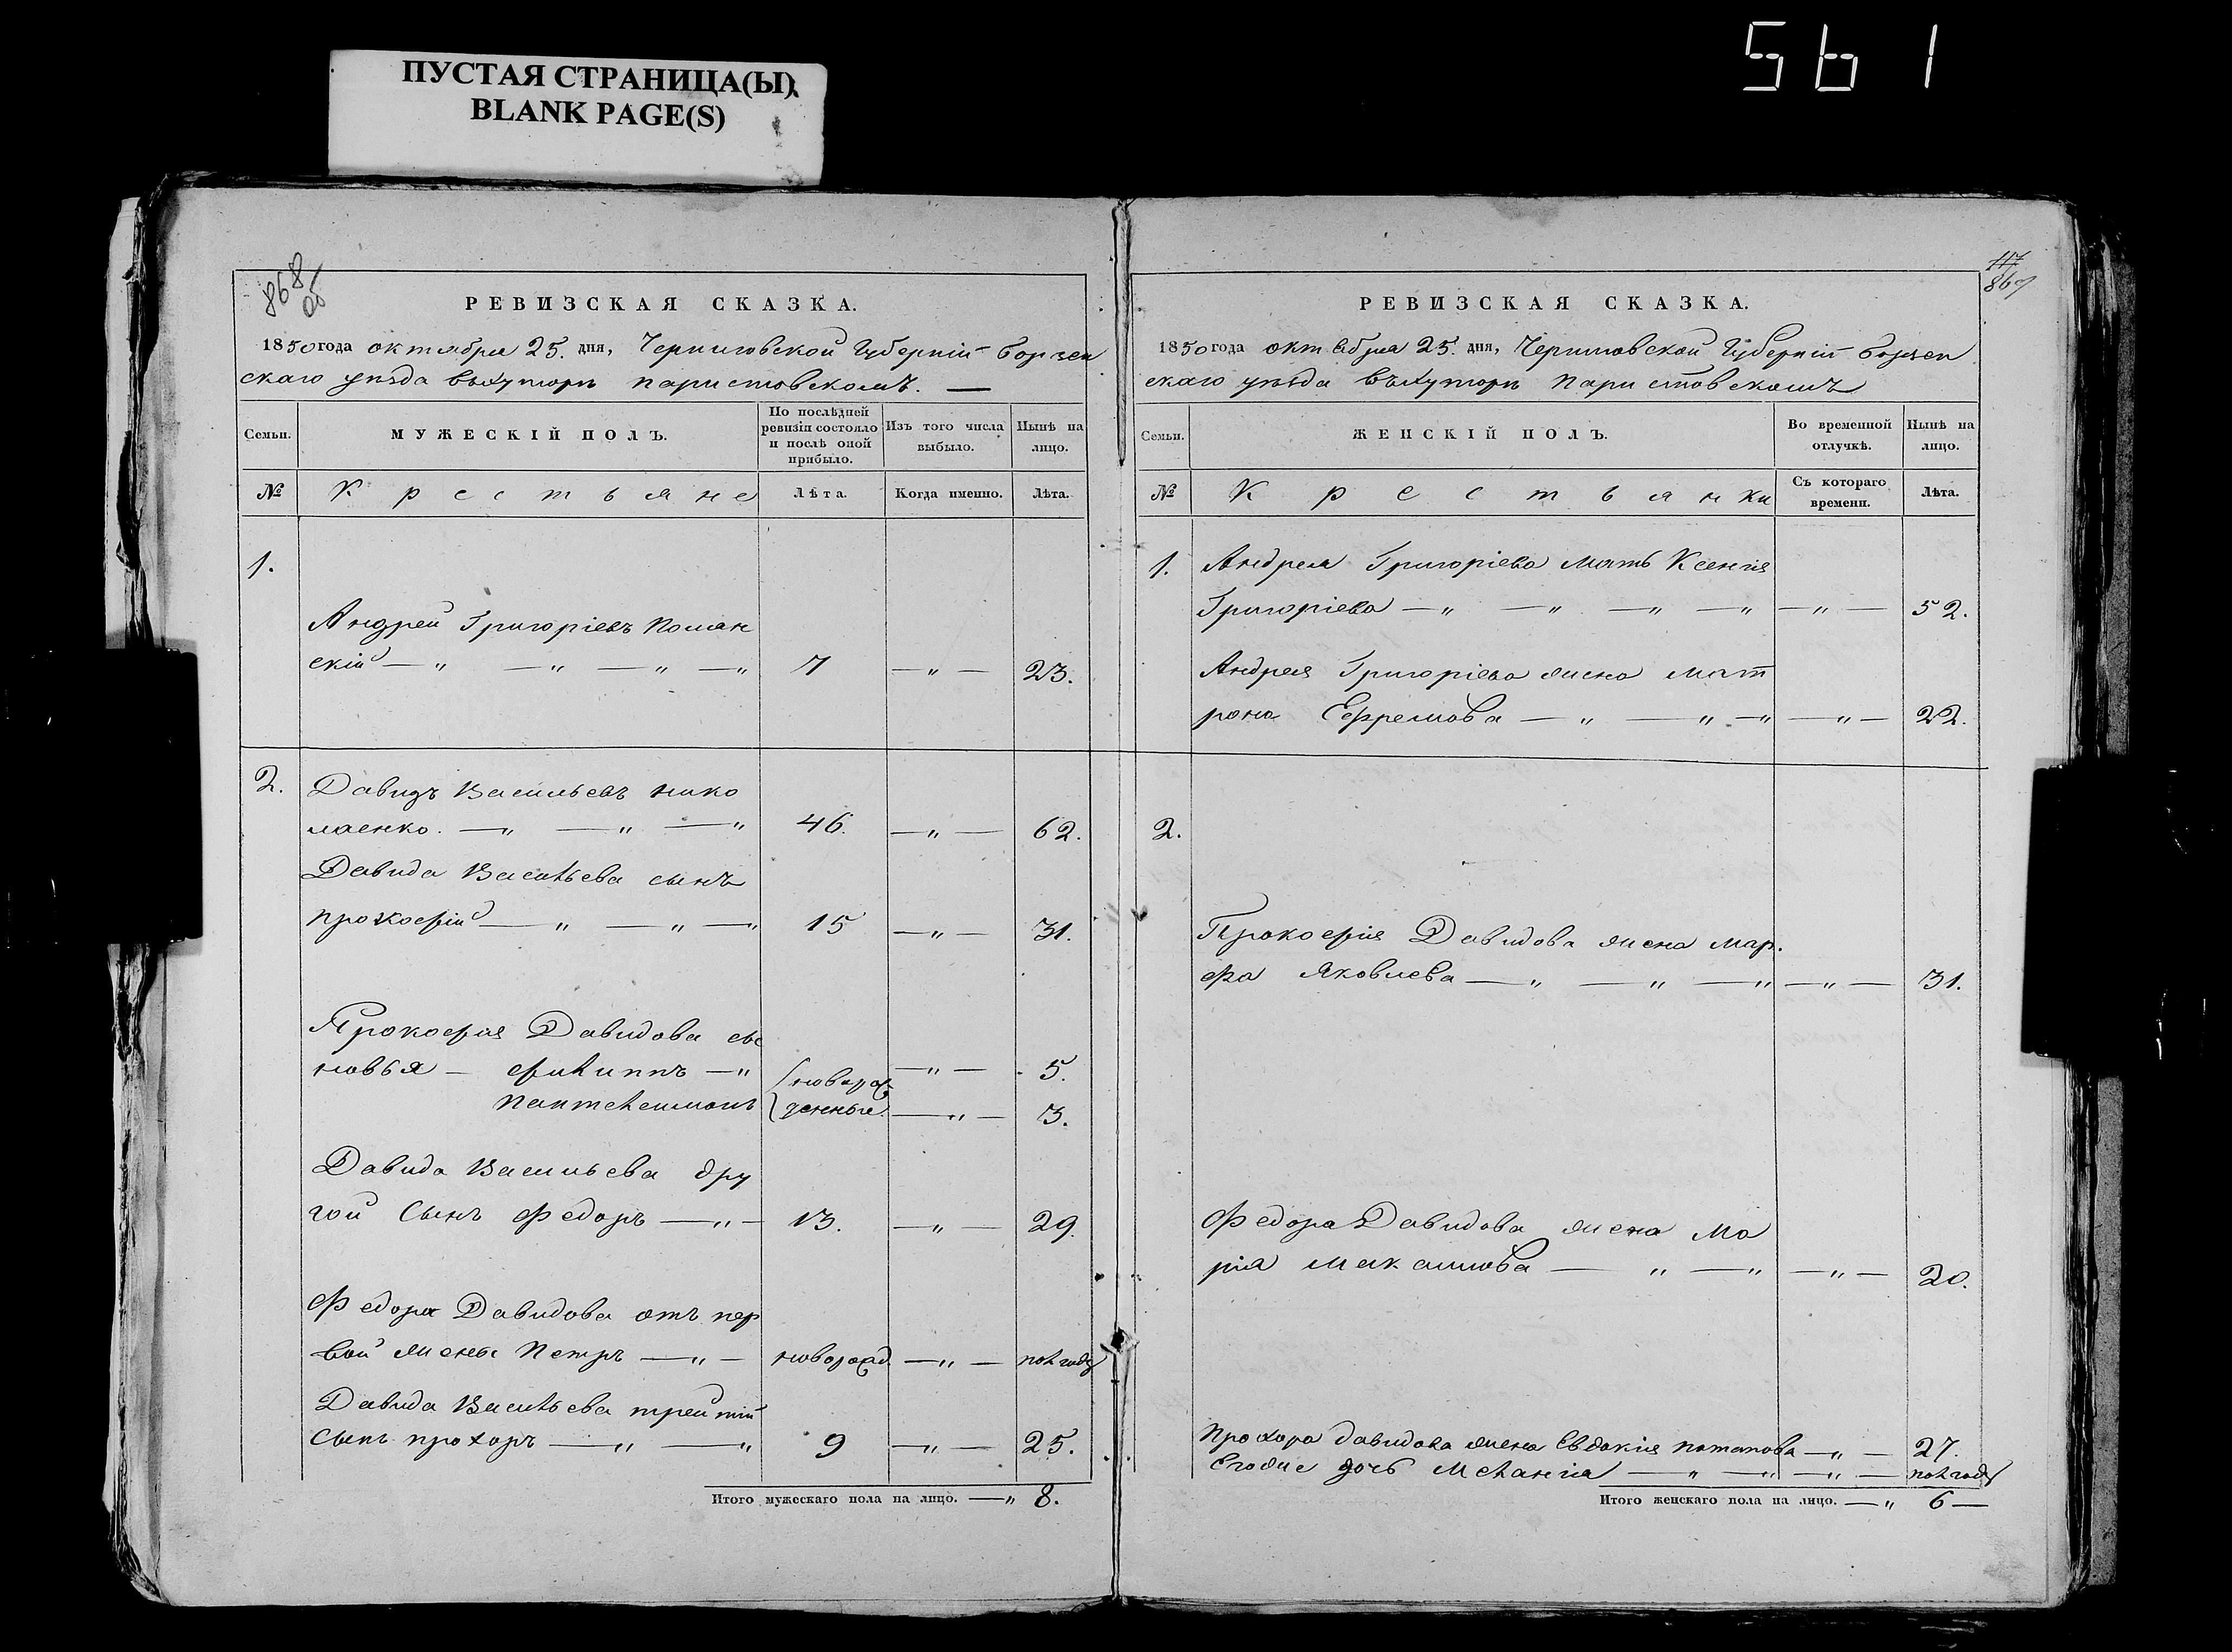 561
ПУСТАЯ СТРАНИЦА(Ы)
BLANK PAGE(S)
868
об
РЕВИЗСКАЯ СКАЗКА.
1850 года октября 25. дня, Черниговской Губерніи Борзен
скаго уѣзда въ хуторѣ паристовскомъ. —
Семьи.
МУЖЕСКІЙ ПОЛЪ.
По послѣдней
ревизіи состояло
и послѣ оной
прибыло.
Изъ того числа
выбыло.
Нынѣ на
лицо.
№ Крестьяне Лѣта. Когда именно. Лѣта.
1.
Андрей Григоріевъ
скій — „ — „ — „ — „ 7 — „ — 23.
2. Давидъ Васильевъ нико
лаенко. — „ — „ — „ 46. — „ — 62.
Давида Васильева сынъ
прокофій — „ — „ — „ 15 — „ — 31.
Прокофія Давидова сы
новья — филиппъ — „ — „ — 5.
пантелеимонъ новорож
денные — „ — 3.
Давида Васильева дру
гой Сынъ Федоръ — „ — 13. — „ — 29.
Федора Давидова отъ пер
вой жены Петръ — „ — новорожд — „ — пол года
Давида Васильева третій
Сынъ прохоръ — „ — „ 9 — „ — 25.
Итого мужескаго пола на лицо. — „ 8.
117
869
РЕВИЗСКАЯ СКАЗКА.
1850 года октября 25. дня, Черниговской Губерніи Борзен
скаго уѣзда въ хуторѣ паристовскомъ
Семьи.
ЖЕНСКІЙ ПОЛЪ.
Во временной
отлучкѣ.
Нынѣ на
лицо.
№ Крестьянки Съ котораго
времени. Лѣта.
1. Андрея Григоріева мать Ксенія
Григоріева — „ — „ — „ — „ — „ — 52.
Андрея Григоріева жена мат
рона Ефремова — „ — „ — „ — „ — 22.
2.
Прокофія Давидова жена мар.
фа Яковлева — „ — „ — „ — „ — 31.
Федора Давидова жена Ма
рія максимова — „ — „ — „ — 20.
Прохора давидова жена Евдокія потапова — „ — 27.
Егоже дочь Меланія — „ — „ — „ — пол года
Итого женскаго пола на лицо. — „ 6 —